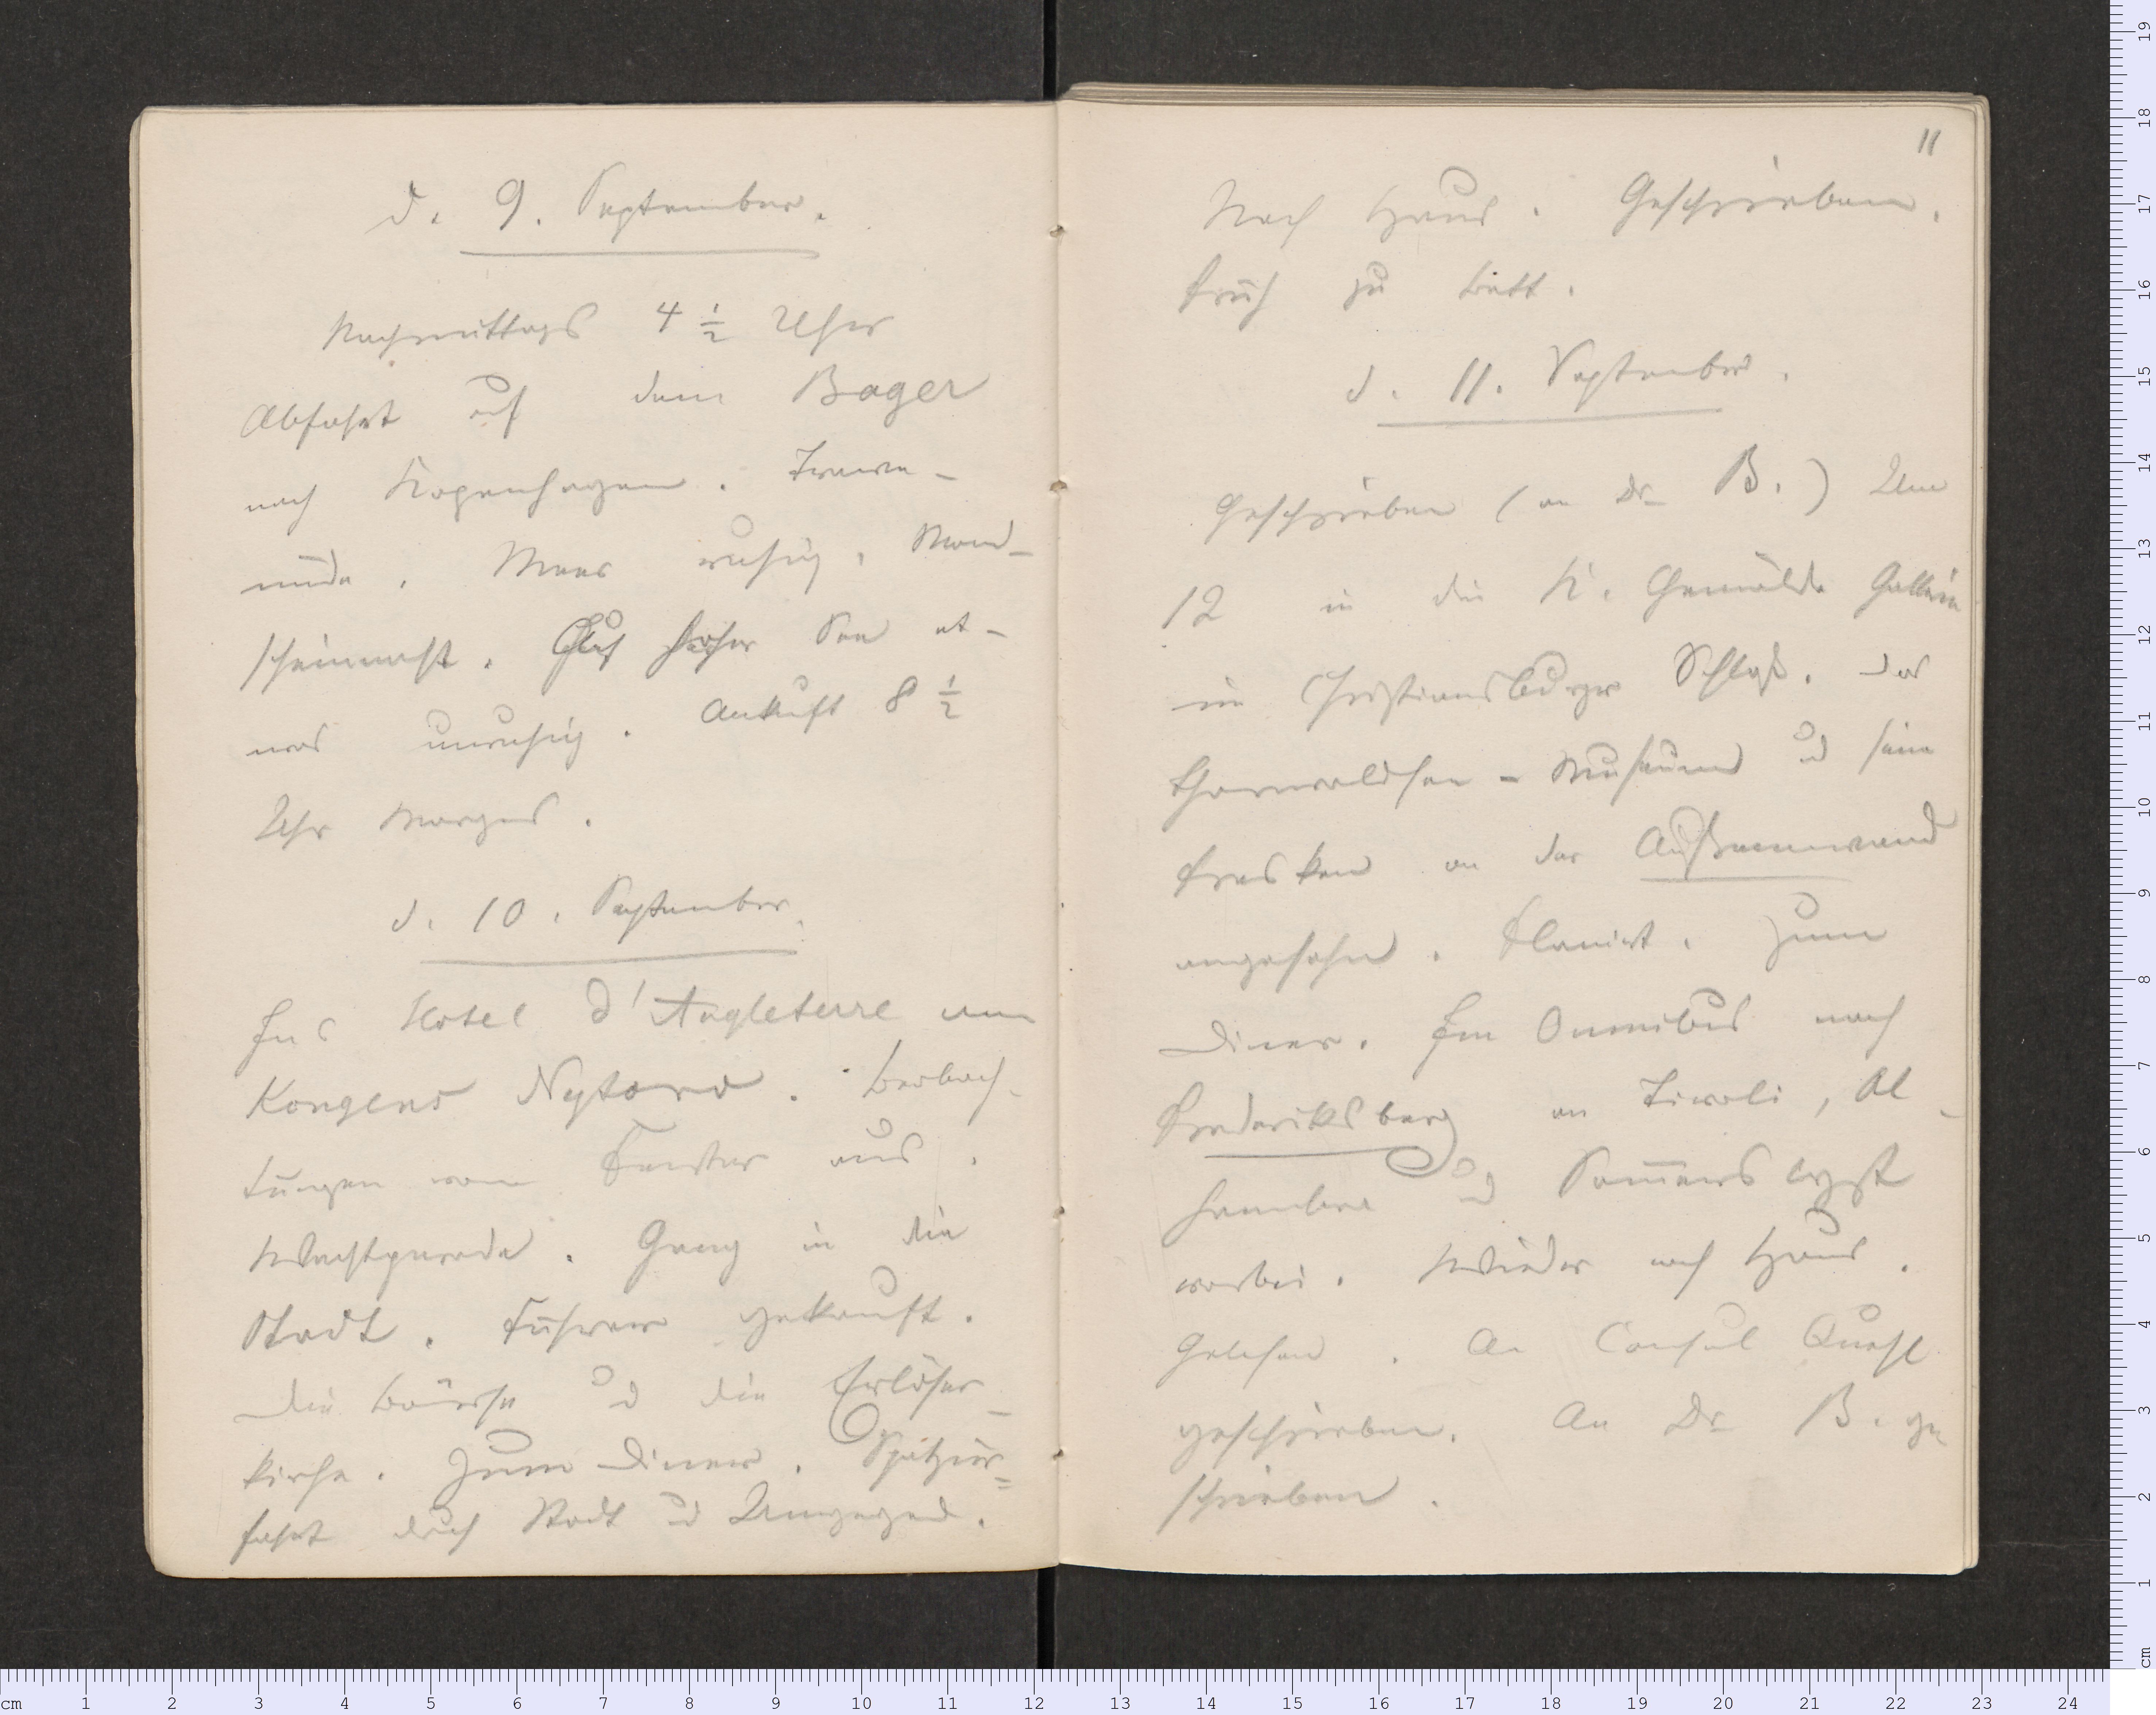 d. 9. September.
Nachmittags 4 ½ Uhr
Abfahrt auf dem Bager
nach Kopenhagen. Trave-
münde. Meer ruhig, Mond-
scheinnacht. Auf hoher See et-
was unruhig. Ankuft 8 ½
Uhr Morgens.
d. 10. September.
Ins Hotel d'Angleterre am
Kongens Nytorv. Beobach-
tungen vom Fenster aus.
Wachtparade. Gang in die
Stadt. Führer gekauft.
Die Börse und die Erlöser-
kirche. Zum Diner. Spatzier=
fahrt durch Stadt und Umgegend.
11
Nach Haus. Geschrieben.
Früh zu Bett.
d. 11. September.
Geschrieben (an Dr B.) Um
12 in die K. Gemälde Gallerie
im Christiansburger Schloß. Das
Thorwaldsen-Museum und seine
Fresken an der Außenwand
angesehn. Flanirt. Zum
Diner. Im Omnibus nach
Frederiksberg an Tivoli, Al-
hambra und Somerslyst
vorbei. Wieder nach Haus.
Gelesen. An Consul Quehl
geschrieben. An Dr B. ge
schrieben.